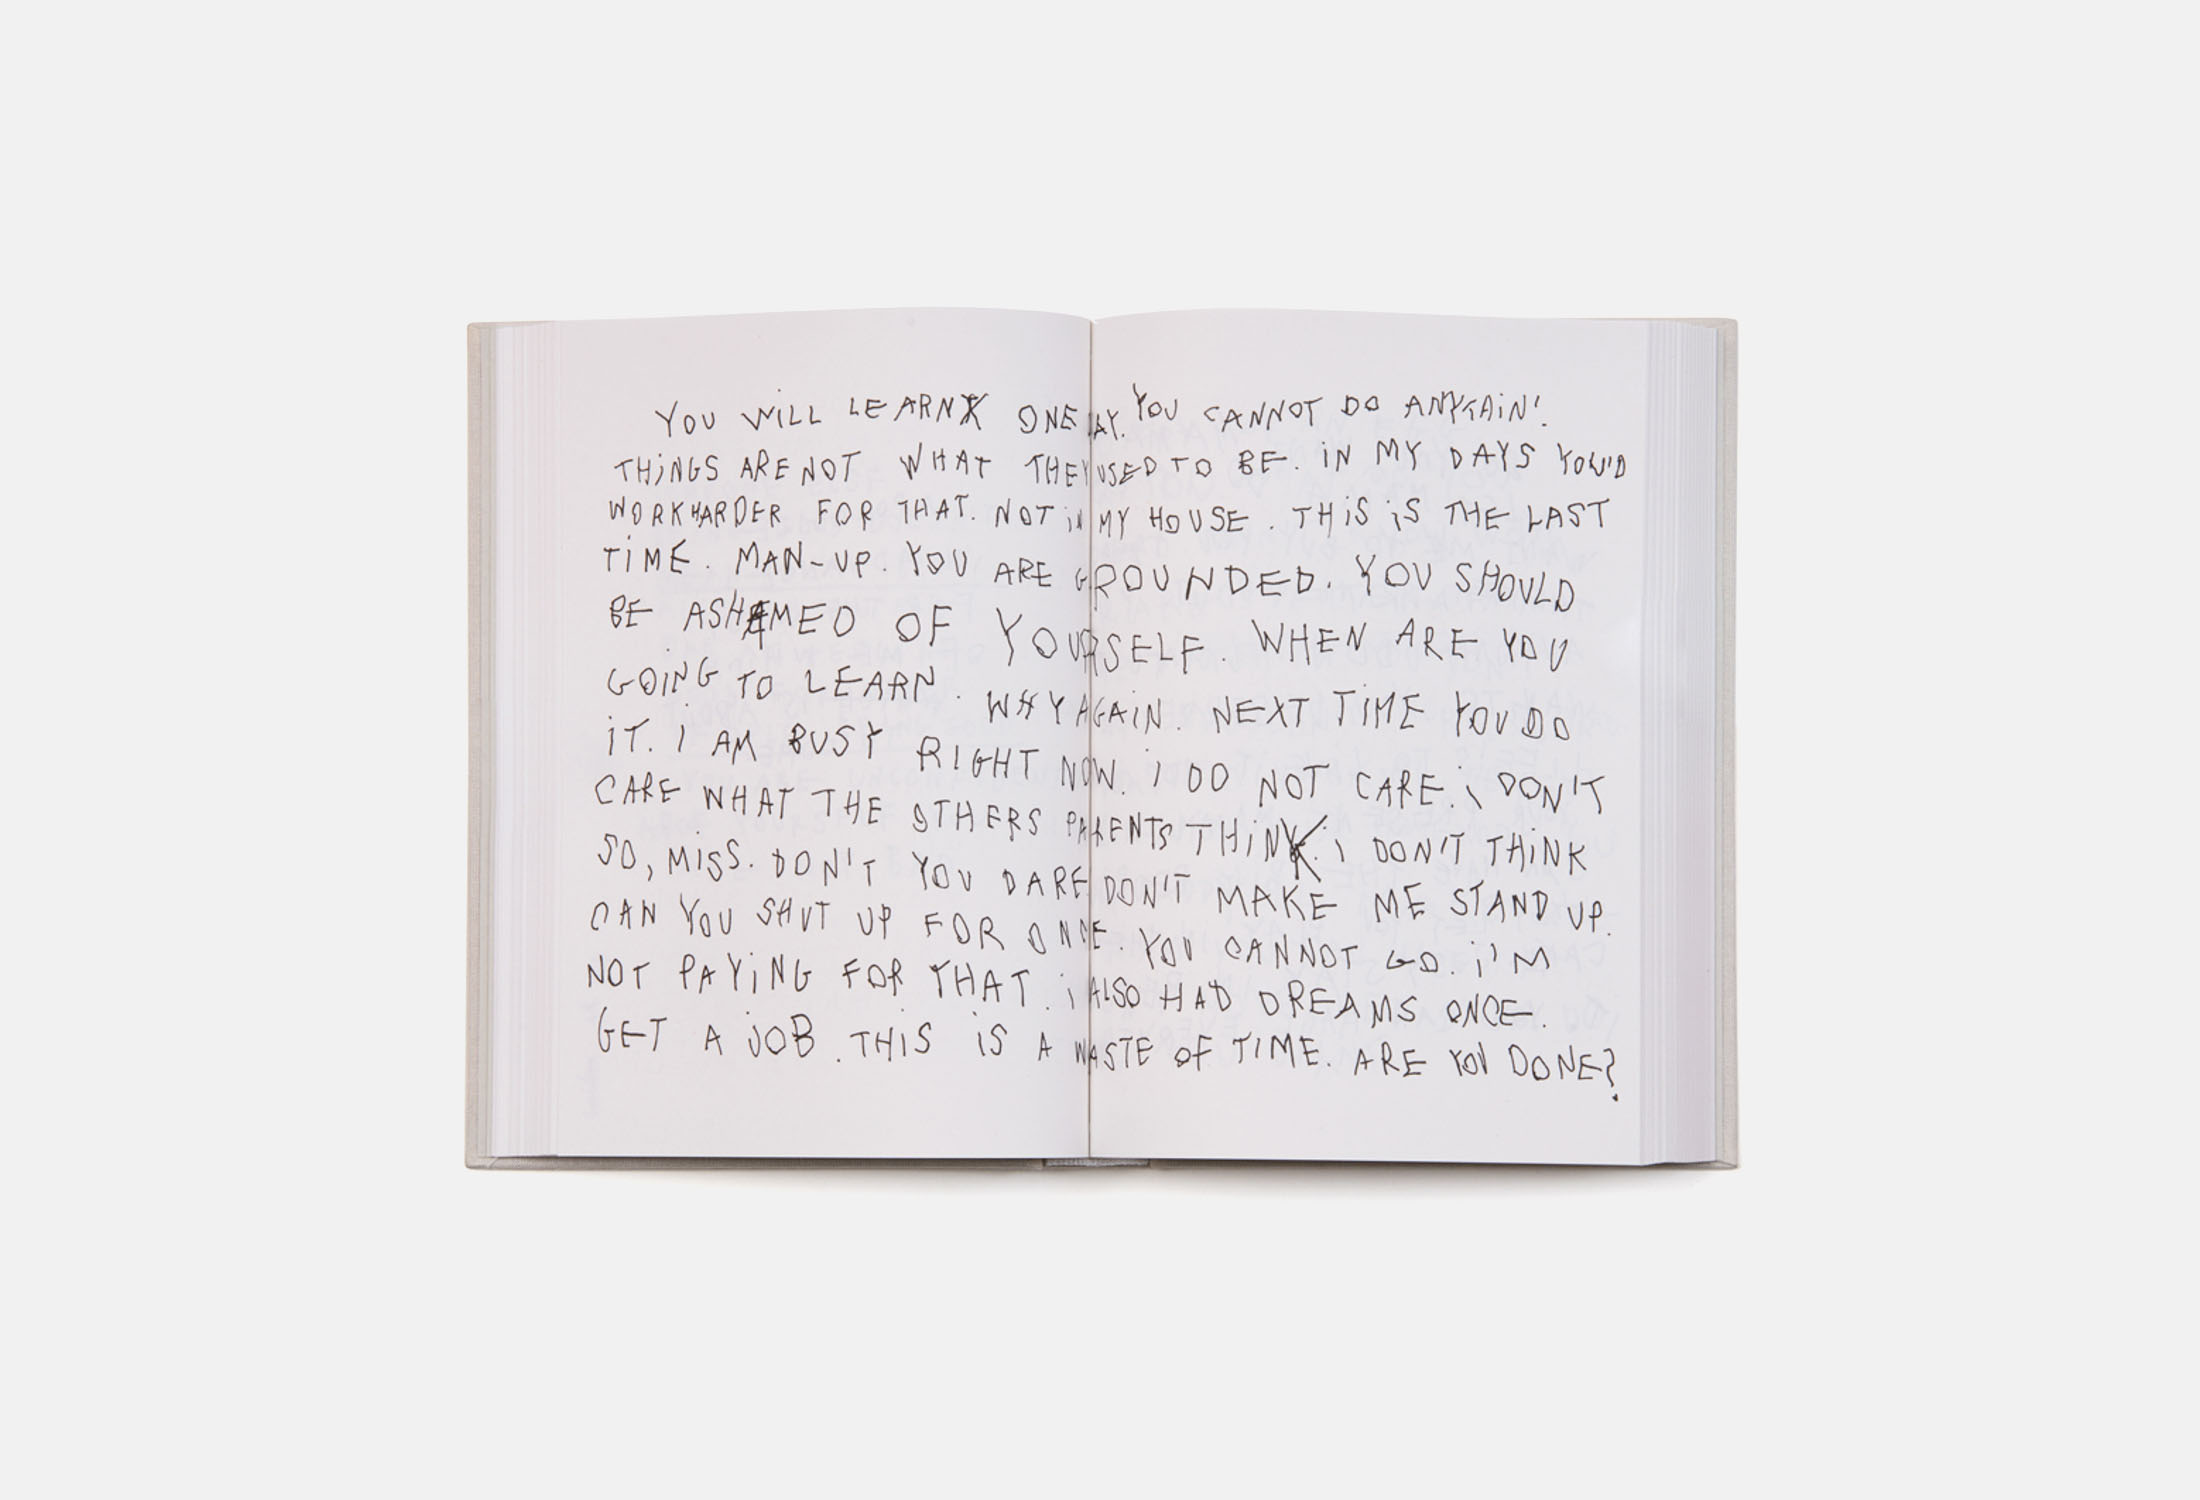 YOU WILL LEARN ONE DAY. YOU CANNOT DO
THiNGS ARE NOT WHAT THEY USED TO BE. iN MY DAYS YOU'D
WORK HARDER FOR THAT. NOT iN MY HOUSE. THiS iS THE LAST
TiME. MAN-UP. YOU ARE GROUNDED. YOU SHOULD
BE ASHAMED OF YOURSELF. WHEN ARE YOU
GOiNG TO LEARN. WHY AGAiN. NEXT TiME YOU DO
iT. i AM BUSY RIGHT NOW. i DO NOT CARE. i DON'T
CARE WHAT THE OTHERS PARENTS THiNK. i DON'T THiNK
SO, MiSS. DON'T YOU DARE. DON'T MAKE ME STAND UP.
CAN YOU SHUT UP FOR ONCE. YOU CANNOT GO. i'M
NOT PAYiNG FOR THAT. i ALSO HAD DREAMS ONCE.
GET A jOB. THiS iS A WASTE OF TIME. ARE YOU DONE?